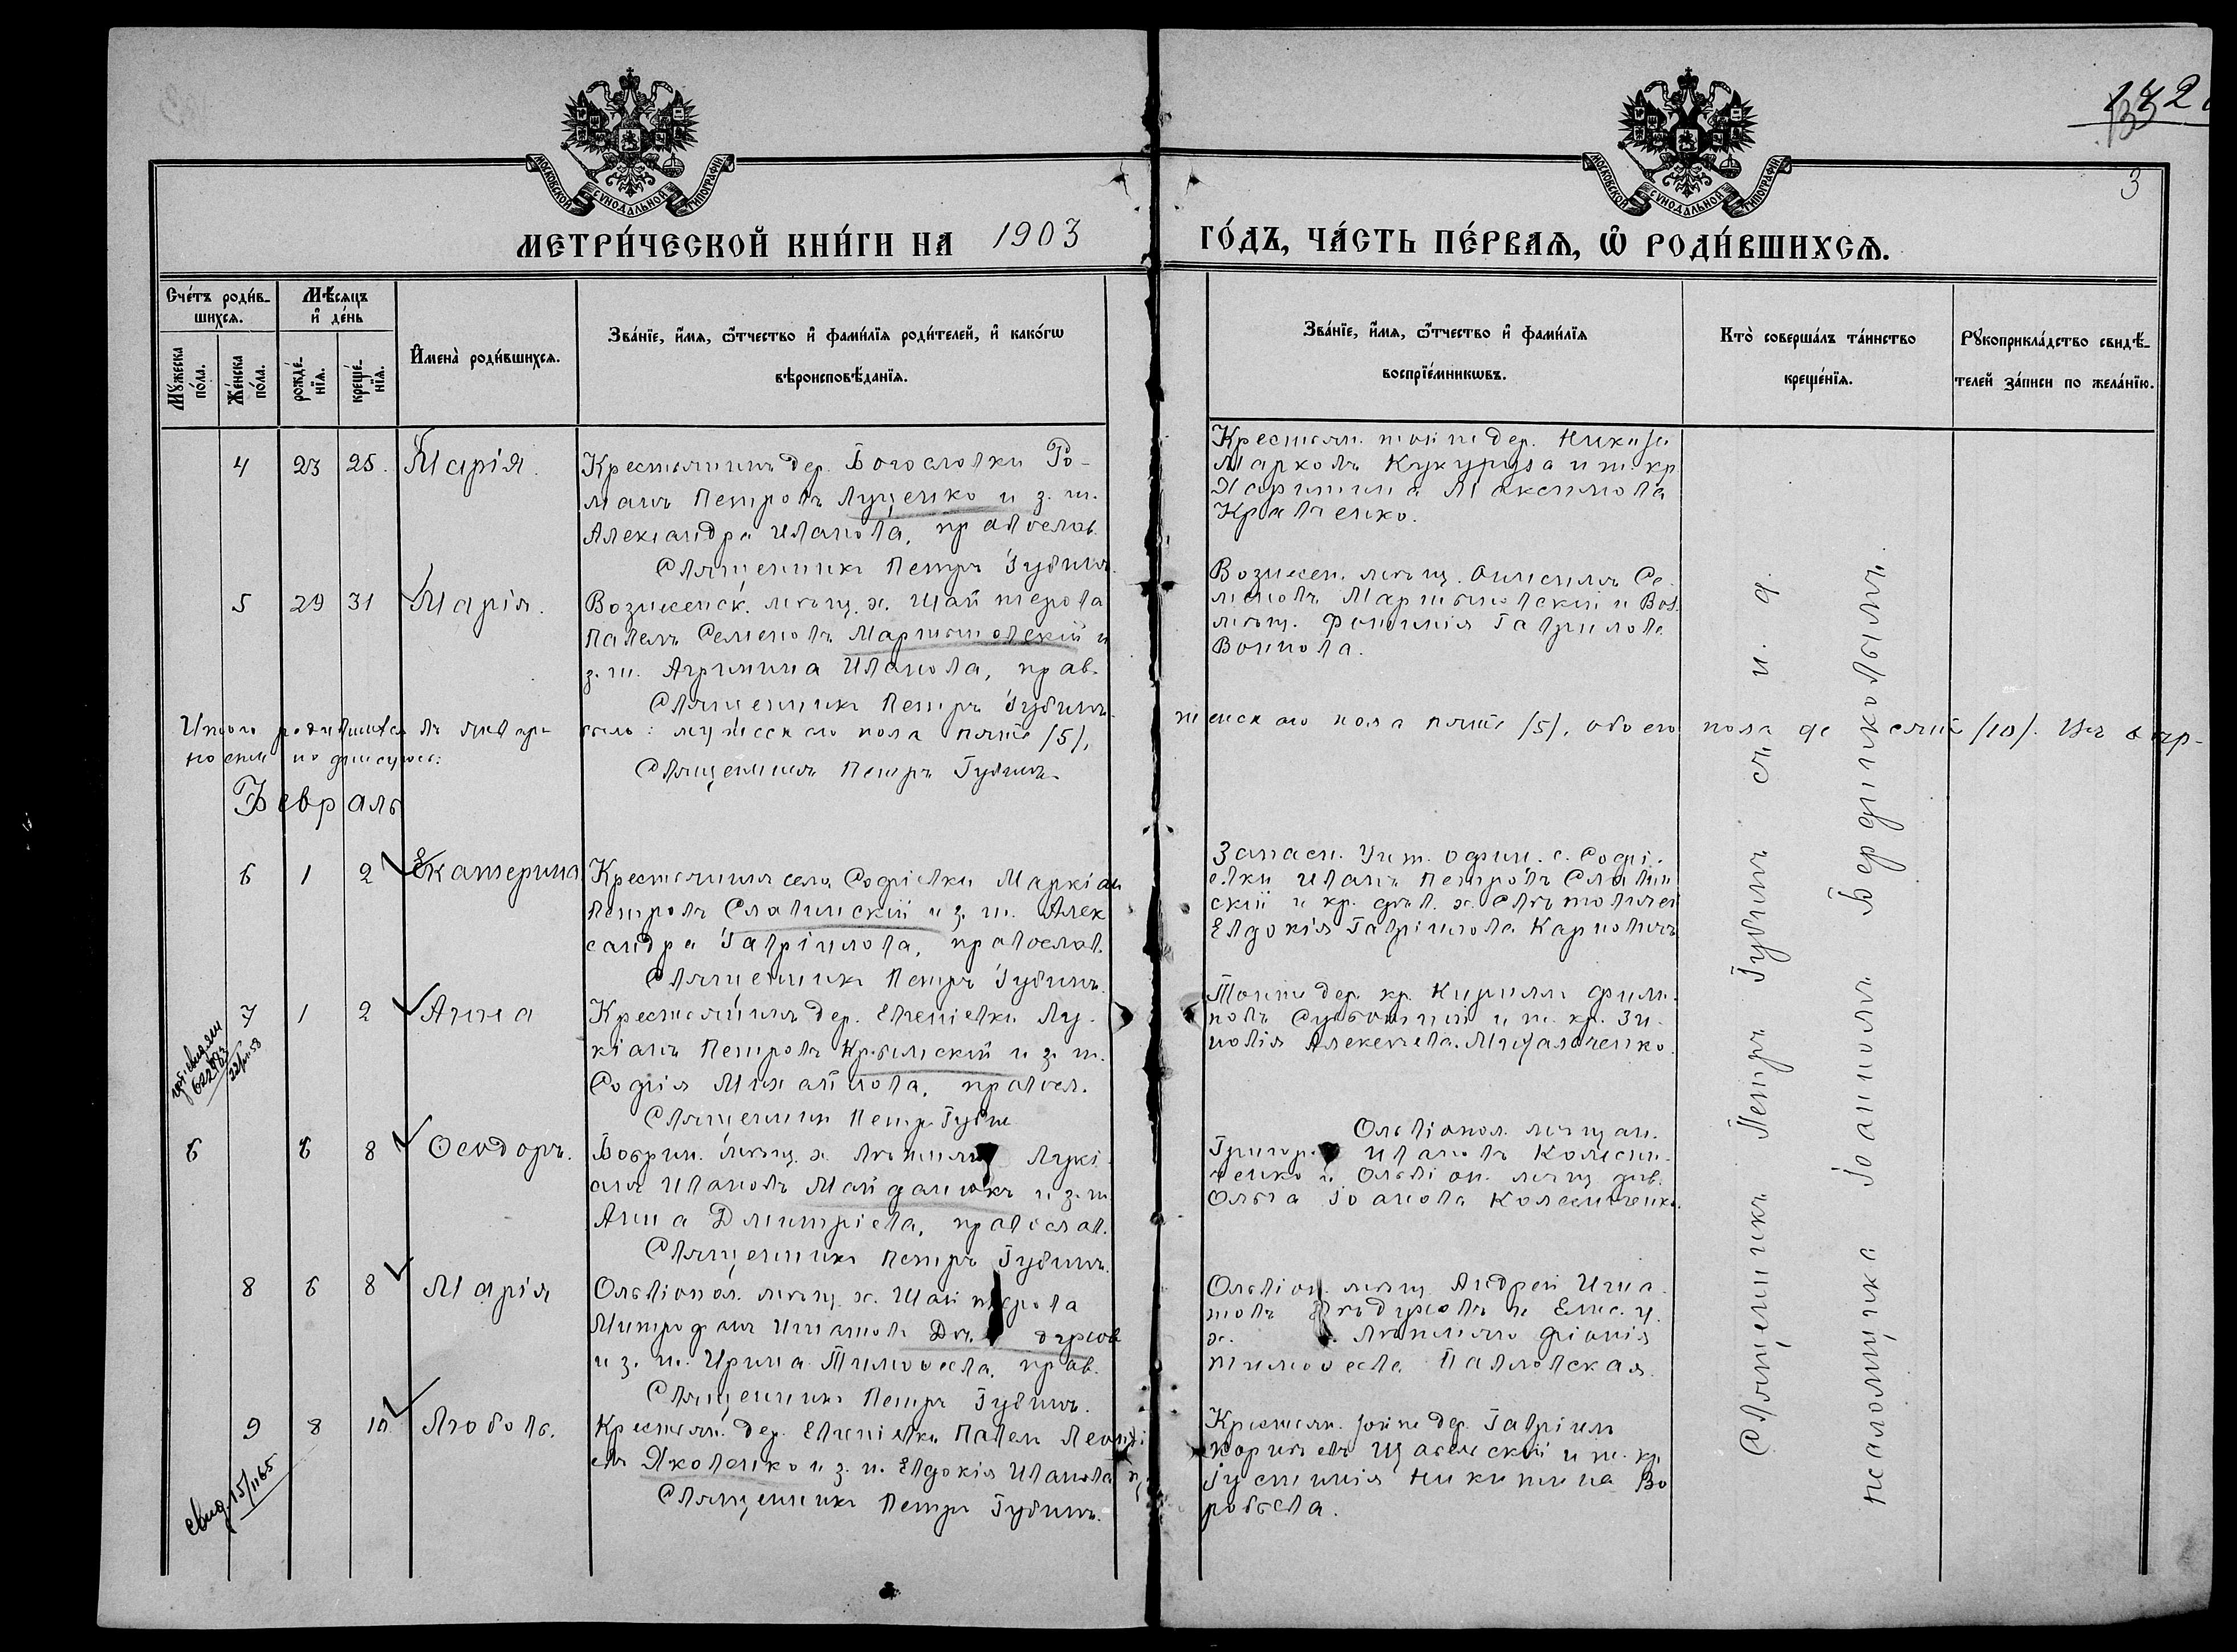 142
3
МОСКОВСКОЙ СѴНОДАЛЬНОЙ ТИПОГРАФІИ
МОСКОВСКОЙ СѴНОДАЛЬНОЙ ТИПОГРАФІИ
МЕТРИ́ЧЕСКОЙ КНИ́ГИ НА 1903 ГО́ДЪ, ЧА́СТЬ ПЕ́РВАѦ, Ѡ РОДИ́ВШИХСѦ.
Сче́тъ роди́в-
шихсѧ.
Мꙋ́жеска
по́ла.
Же́нска
по́ла.
Мѣ́сѧцъ
и҆ де́нь
рожде́-
нїѧ.
креще́-
нїѧ.
И҆мена̀ роди́вшихсѧ.
Зва́нїе, и҆́мѧ, ѻ҆́тчество и҆ фами́лїѧ роди́телей, и҆ како́гѡ
вѣроисповѣ́данїѧ.
Зва́нїе, и҆́мѧ, ѻ҆́тчество и҆ фами́лїѧ
воспрїе́мникѡвъ.
Кто̀ соверша́лъ та́инство
креще́нїѧ.
Рꙋкоприкла́дство свидѣ́-
телей за́писи по жела́нїю.
4 23 25. Марія.
Крестьянинъ дер. Богословки Ро-
манъ Петровъ Луценко и з. ж.
Александра Иванова, православ.
Священникъ Петръ Губинъ.
Крестьян. той же дер. Никита
Марковъ Кукуруза и т. кр.
Харитина Максимова
Кравченко.
5 29 31 Марія.
Вознесенск. мѣщ. х. Шайтерова
Павелъ Семеновъ Мартыновскій и
з. ж. Агрипина Иванова, прав.
Священникъ Петръ Губинъ.
Вознесен. мѣщ. Онисимъ Се-
меновъ Мартыновскій и Воз.
мѣщ. Фотинія Гаврилова
Воинова.
Итого родившихся въ январѣ было: мужескаго пола пять /5/, женскаго пола пять /5/, обоего пола десять /10/. Въ вѣр-
ности подписуюсь:
Священникъ Петръ Губинъ.
Февраль
6 1 2 Екатерина
Крестьянинъ села Софіевки Маркіан
Петровъ Славинскій и з. ж. Алек
сандра Гавріилова, православ.
Священникъ Петръ Губинъ.
Запасн. Унт. офиц. с. Софі-
евки Иванъ Петровъ Славин
скій и кр. дѣв. х.
Евдокія Гавріилова Карповичъ
7 1 2 Анна
22/VII 53
Крестьянинъ дер. Евгеніевки Лу-
кіанъ Петровъ Крыжскій и з. ж.
Софія Михайлова, правосл.
Священник Петр Губин
Той же дер. кр. Кириллъ Филип-
повъ Субботній и т. кр. Зи-
новія Алексѣева Михальченко.
6 6 8 Ѳеодоръ.
Бобрин. мѣщ. х. Лукі-
анъ Ивановъ Майданюкъ и з. ж.
Анна Димитріева, православ.
Священникъ Петръ Губинъ.
Ольвіопол. мѣщан.
Григорій Ивановъ Колесни-
ченко и Ольвіоп. мѣщ. дѣв.
Ольга Іоанова Колесниченко.
8 6 8 Марія
Ольвіопол. мѣщ. х. Шайтерова
Митрофанъ Игнатовъ
и з. ж. Ирина Тимофеева, прав.
Священникъ Петръ Губинъ.
Ольвіоп. мѣщ. Андрей Игна-
товъ и Елис. ц.
х. Фіонія
Тимофеева Павловская.
9 8 10 Любовь.
свид. 15/II 65
Крестьян. дер. Евгеніевки Павелъ Леонті
евъ Яковенко и з. ж. Евдокія Иванова п
Священникъ Петръ Губинъ.
Крестьян. той же дер. Гавріилъ
Корнѣевъ и т. кр.
Іустинія Никитина Во
робьева.
Священникъ Петръ Губинъ съ и. д.
псаломщика Іоанномъ Бердниковымъ.